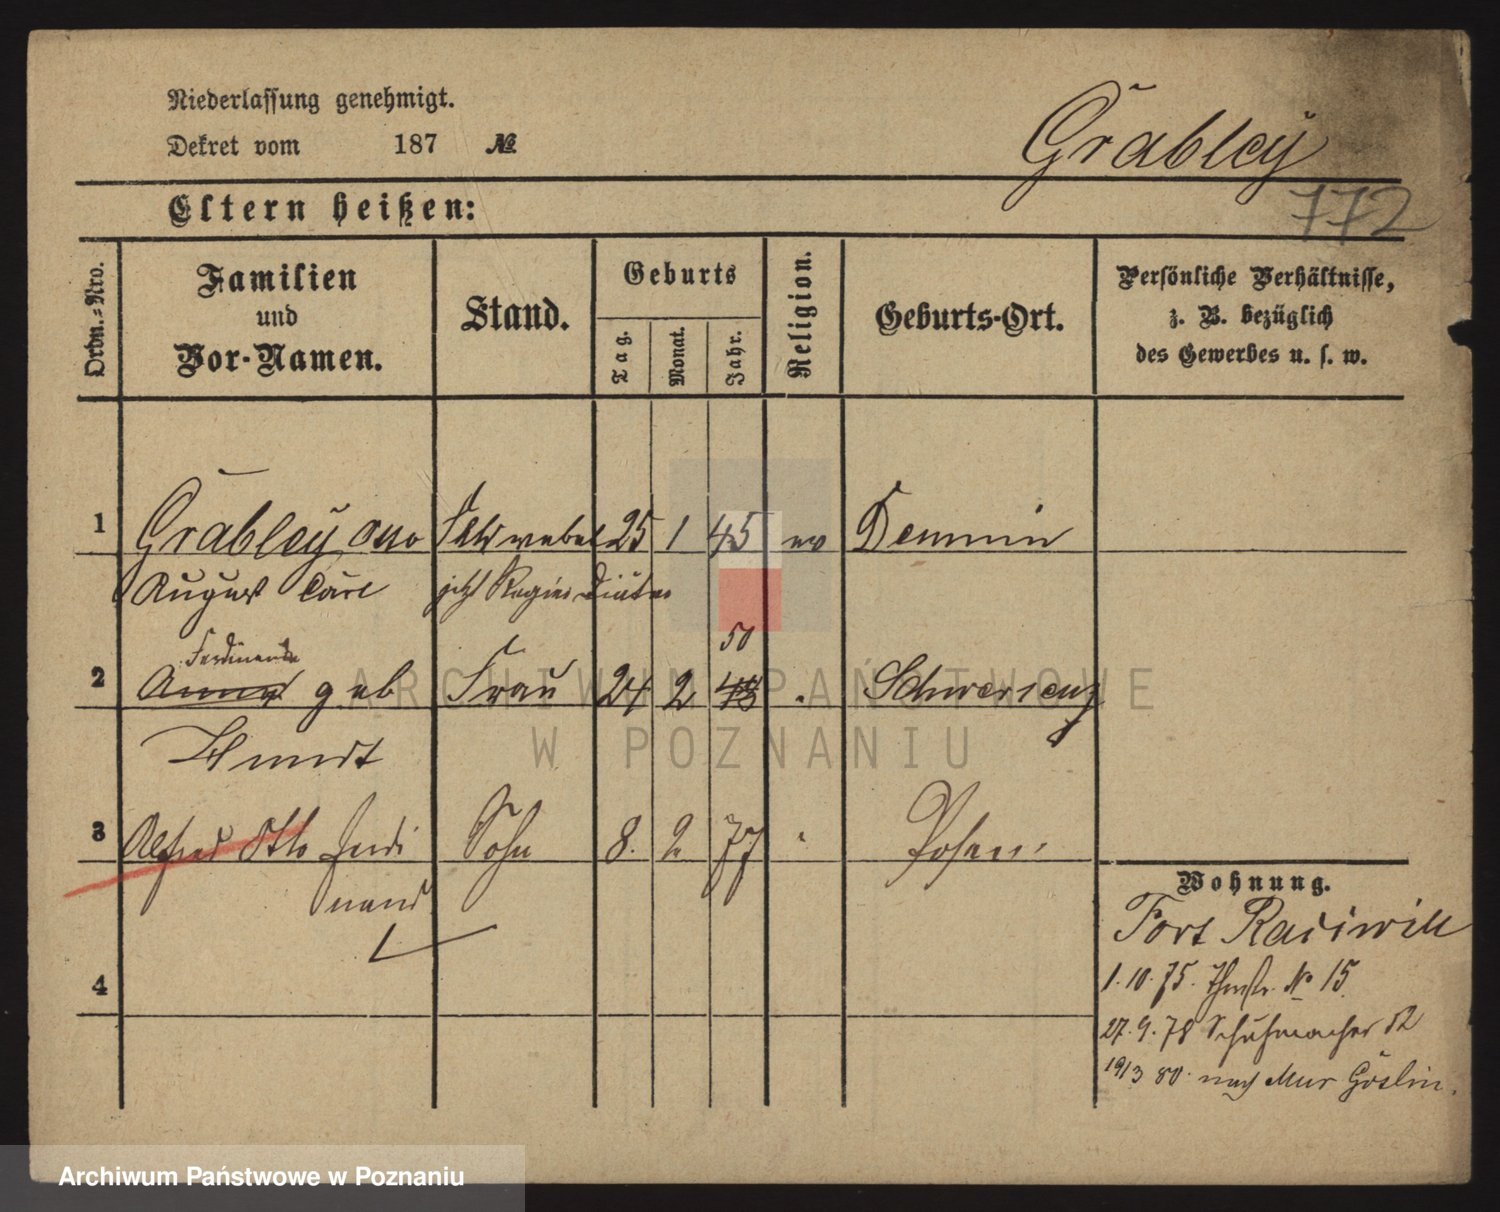 Niederlassung genehmigt.
Dekret vom 187 №
Grabley
772
Eltern heißen:
Ordn.-Nro.
Familien und Vor-Namen.
Stand.
Geburts
Tag.
Monat.
Jahr.
Religion.
Geburts-Ort.
Persönliche Verhältnisse,
z. B. bezüglich
des Gewerbes u. s. w.
1 Grabley Otto Feldwebel 25 1 45 ev Demmin
August Carl jetzt
Ferdinande 50
2 Anna geb Frau 24 2 48 " Schwersenz
3 Alfred Otto Ferdi Sohn 8. 2 77 " Posen
nand
4
Wohnung.
Fort Radiwill
1.10.75. № 15
27.9.78 Schuhmacher 12
19/3 80 nach Mur Goslin.
ARCHIWUM PAŃSTWOWE
W POZNANIU
Archiwum Państwowe w Poznaniu